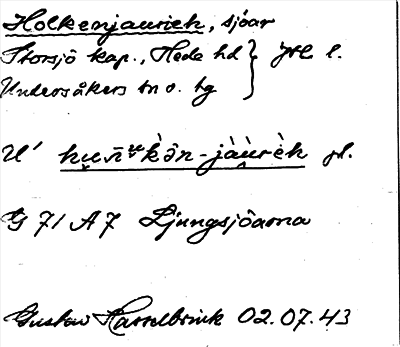 Holkenjaurieh, sjöar
Storsjö kap., Hede hd } Jtl l.
Undersåkers tn o. tg
U' pl.
G 71 A7 Ljungsjöarna
Gustav Hasselbrink 02.07.43